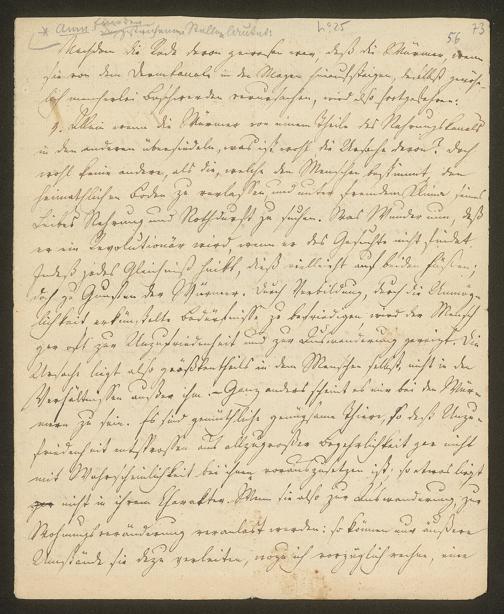 Anm. 
Nachdem die Rede davon gewesen war, daß die Würmer, wenn
sie von dem Darmkanale in den Magen hinaufsteigen, daselbst gewöhn-
lich mancherlei Beschwerden verursachen, wird also fortgefahren:
Allein wenn die Würmer von einem Theile des Nahrungskanals
in den anderen übersiedeln, was ist wohl die Ursache davon? Doch
wohl keine andere, als die, welche den Menschen bestimmt, den
heimathlichen Boden zu verlassen und unter fremdem Klima seines
Leibes Nahrung und Nothdurft zu suchen. Was Wunder nun, daß
er ein Revolutionär wird, wenn er das Gesuchte nicht findet
Indeß jedes Gleichniß hinkt, dieß vielleicht auf beiden Füßen,
doch zu Gunsten der Würmer. Durch Verbildung, durch die Unmög-
lichkeit erkünstelte Bedürfnisse zu befriedigen wird der Mensch
gar oft zur Unzufriedenheit und zur Auswanderung gereizt. Die
Ursache liegt also großentheils in dem Menschen selbst, nicht in den
Verhältnissen außer ihm. – Ganz anders scheint es mir bei den Wür-
mern zu sein. Es sind gemüthliche genügsame Thiere, so daß Unzu-
friedenheit entsprossen aus allzugroßer Begehrlichkeit gar nicht
mit Wahrscheinlichkeit bei ihnen vorauszusetzen ist; so etwas liegt
gar nicht in ihrem Charakter. Wenn sie also zur Auswanderung, zur
Wohnungsveränderung veranlaßt werden: so können nur äußere
Umstände sie dazu verleiten, wozu ich vorzüglich rechne, eine